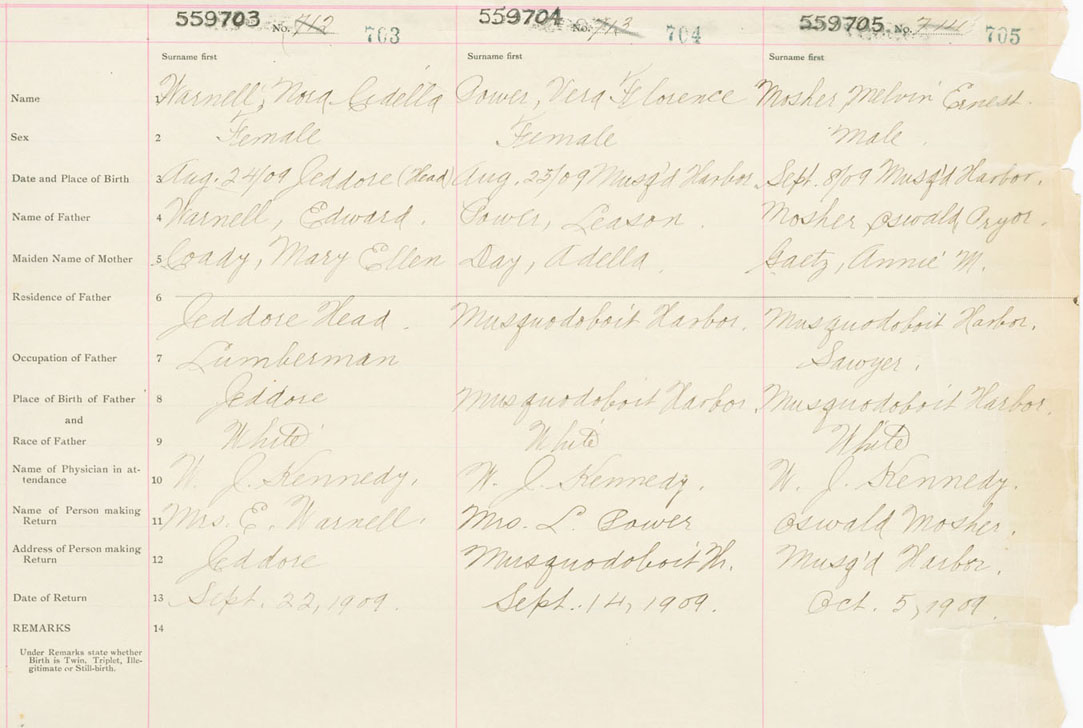 559703 No. 712 703 559704 No. 713 704 559705 No. 714 705
Surname first Surname first Surname first
Name 1 Warnell, Nora Cedella Power, Vera Florence Mosher Melvin Ernest.
Sex 2 Female Female Male.
Date and Place of Birth 3 Aug. 24/09 Jeddore (Head) Aug. 23/09 Musq'd Harbor. Sept. 8/09 Musq'd Harbor.
Name of Father 4 Warnell, Edward. Power, Leason. Mosher, Oswald Pryor.
Maiden Name of Mother 5 Coady, Mary Ellen Day, Adella. Gaetz, Annie M.
Residence of Father 6
Jeddore Head. Musquodoboit Harbor. Musquodoboit Harbor.
Occupation of Father 7 Lumberman Sawyer.
Place of Birth of Father 8 Jeddore Musquodoboit Harbor. Musquodoboit Harbor.
and
Race of Father 9 White White White
Name of Physician in at-
tendance 10 W. J. Kennedy. W. J. Kennedy. W. J. Kennedy.
Name of Person making
Return 11 Mrs. E. Warnell. Mrs. L. Power Oswald Mosher.
Address of Person making
Return 12 Jeddore Musquodoboit Hr. Musq'd Harbor.
Date of Return 13 Sept. 22, 1909. Sept. 14, 1909. Oct. 5, 1909.
REMARKS 14
Under Remarks state whether
Birth is Twin, Triplet, Ille-
gitimate or Still-birth.